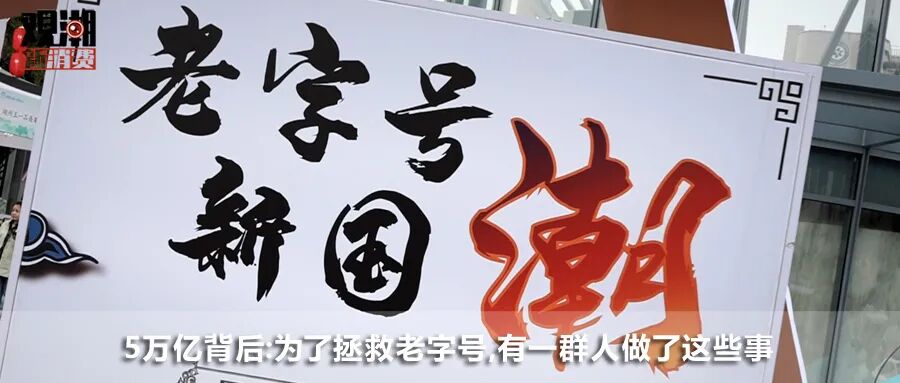 观潮
新消费
老字号
新国潮
5万亿背后:为了拯救老字号,有一群人做了这些事